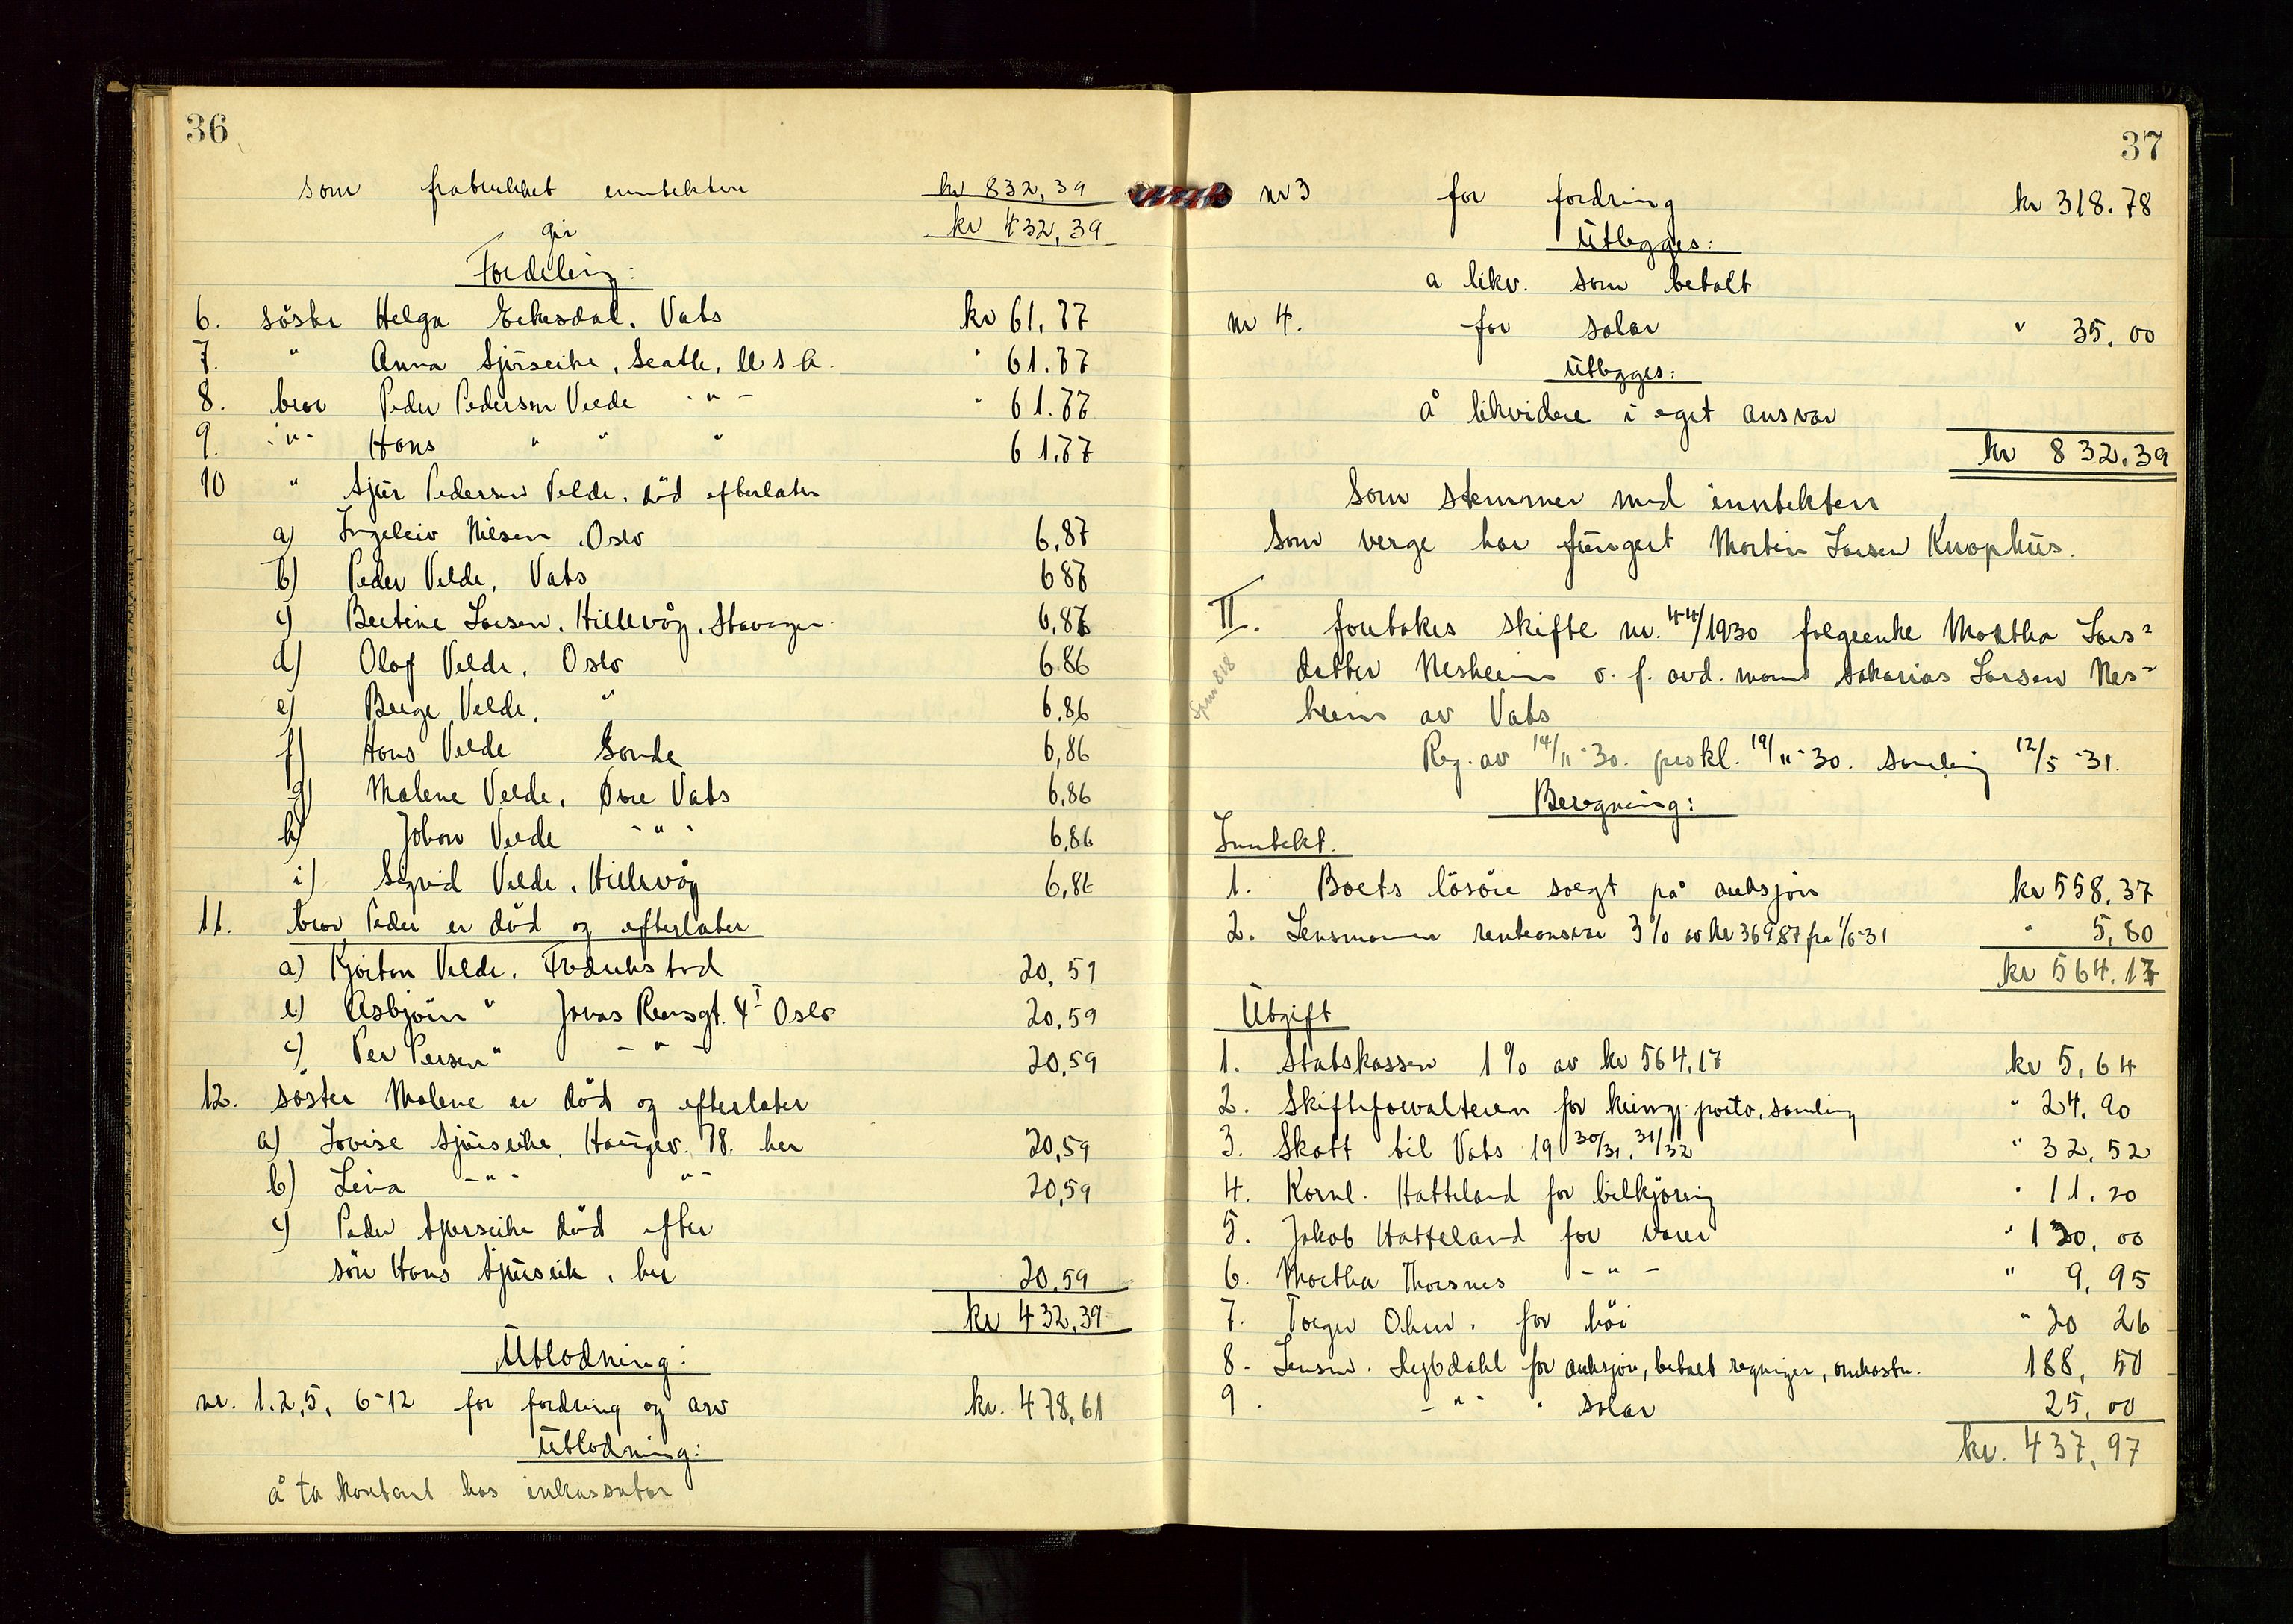 36
som fratrukket inntekten kr 832,39
gir kr 432,39
Fordeling:
6. søster Helga Eikesdal, Vats kr 61,77
7. " Anna Sjurseike, Seatle, U S A. " 61.77
8. bror Peder Pedersen Velde - " - " 61.77
9. - " - Hans " " " 61.77
10 " Sjur Pedersen Velde, död efterlater
a) Ingeleiv Nilsen, Oslo 6,87
b) Peder Velde, Vats 687
c) Bertine Larsen, Hillevåg, Stavanger 6,86
d) Olaf Velde, Oslo 6.86
e) Berge Velde, " 6.86
f) Hans Velde Sande 6,86
g) Malene Velde, Øvre Vats 6,86
h) Johan Velde - " - 6,86
i) Sigvid Velde, Hillevåg 6,86
11. bror Peder er död og efterlater
a) Kjartan Velde, Fredrikstad 20,59
b) Asbjörn " Jonas Reinsgt. 4 I Oslo 20,59
c) Per Persen " - " - 20,59
12. söster Malene er död og efterlater
a) Lovise Sjurseike, Haugev. 78. her 20,59
b) Lina - " - " - 20,59
c) Peder Sjurseike död efter
sön Hans Sjurseik, her 20,59
kr 432,39
Utlodning:
nr. 1.2,5, 6-12 for fordring og arv kr. 478,61
Utlodning:
å ta kontant hos inkassator
37
nr 3 for fordring kr 318.78
Utlegges:
a likv. som betalt
nr 4. for salær " 35,00
Utlegges:
å likvidere i eget ansvar
kr 832,39
som stemmer med inntekten
Som verge har fungert Martin Larsen Knaphus.
II. foretokes skifte nr. 44/1930 følgeenke Martha Lars-
datter Nesheim o. f. avd. mann Sakarias Larsen Nes-
heim av Vats
Reg. av 14/11-30. prokl. 19/11-30. samling 12/5-31.
Beregning:
Inntekt.
1. Boets lösöre solgt på auksjon kr 558,37
2. Lensmannen renteansvar 3% av kr 369,87 fra 1/6-31 " 5,80
kr 564,17
Utgift
1. Statskassen 1% av kr 564,17 kr 5,64
2. Skifteforvalteren for kunng. porto, samling " 24,90
3. Skatt til Vats 19 30/31, 31/32 " 32,52
4. Kornl. Hatteland for bilkjöring " 11.20
5. Jakob Hatteland for varer " 120,00
6. Martha Thorsnes - " - " 9,95
7. Torger Olsen, for höi " 20 26
8. Lensm. Nybdahl for auksjon, betalt regninger, omkostn. 188,50
9. - " - " salær 25,00
kr. 437,97